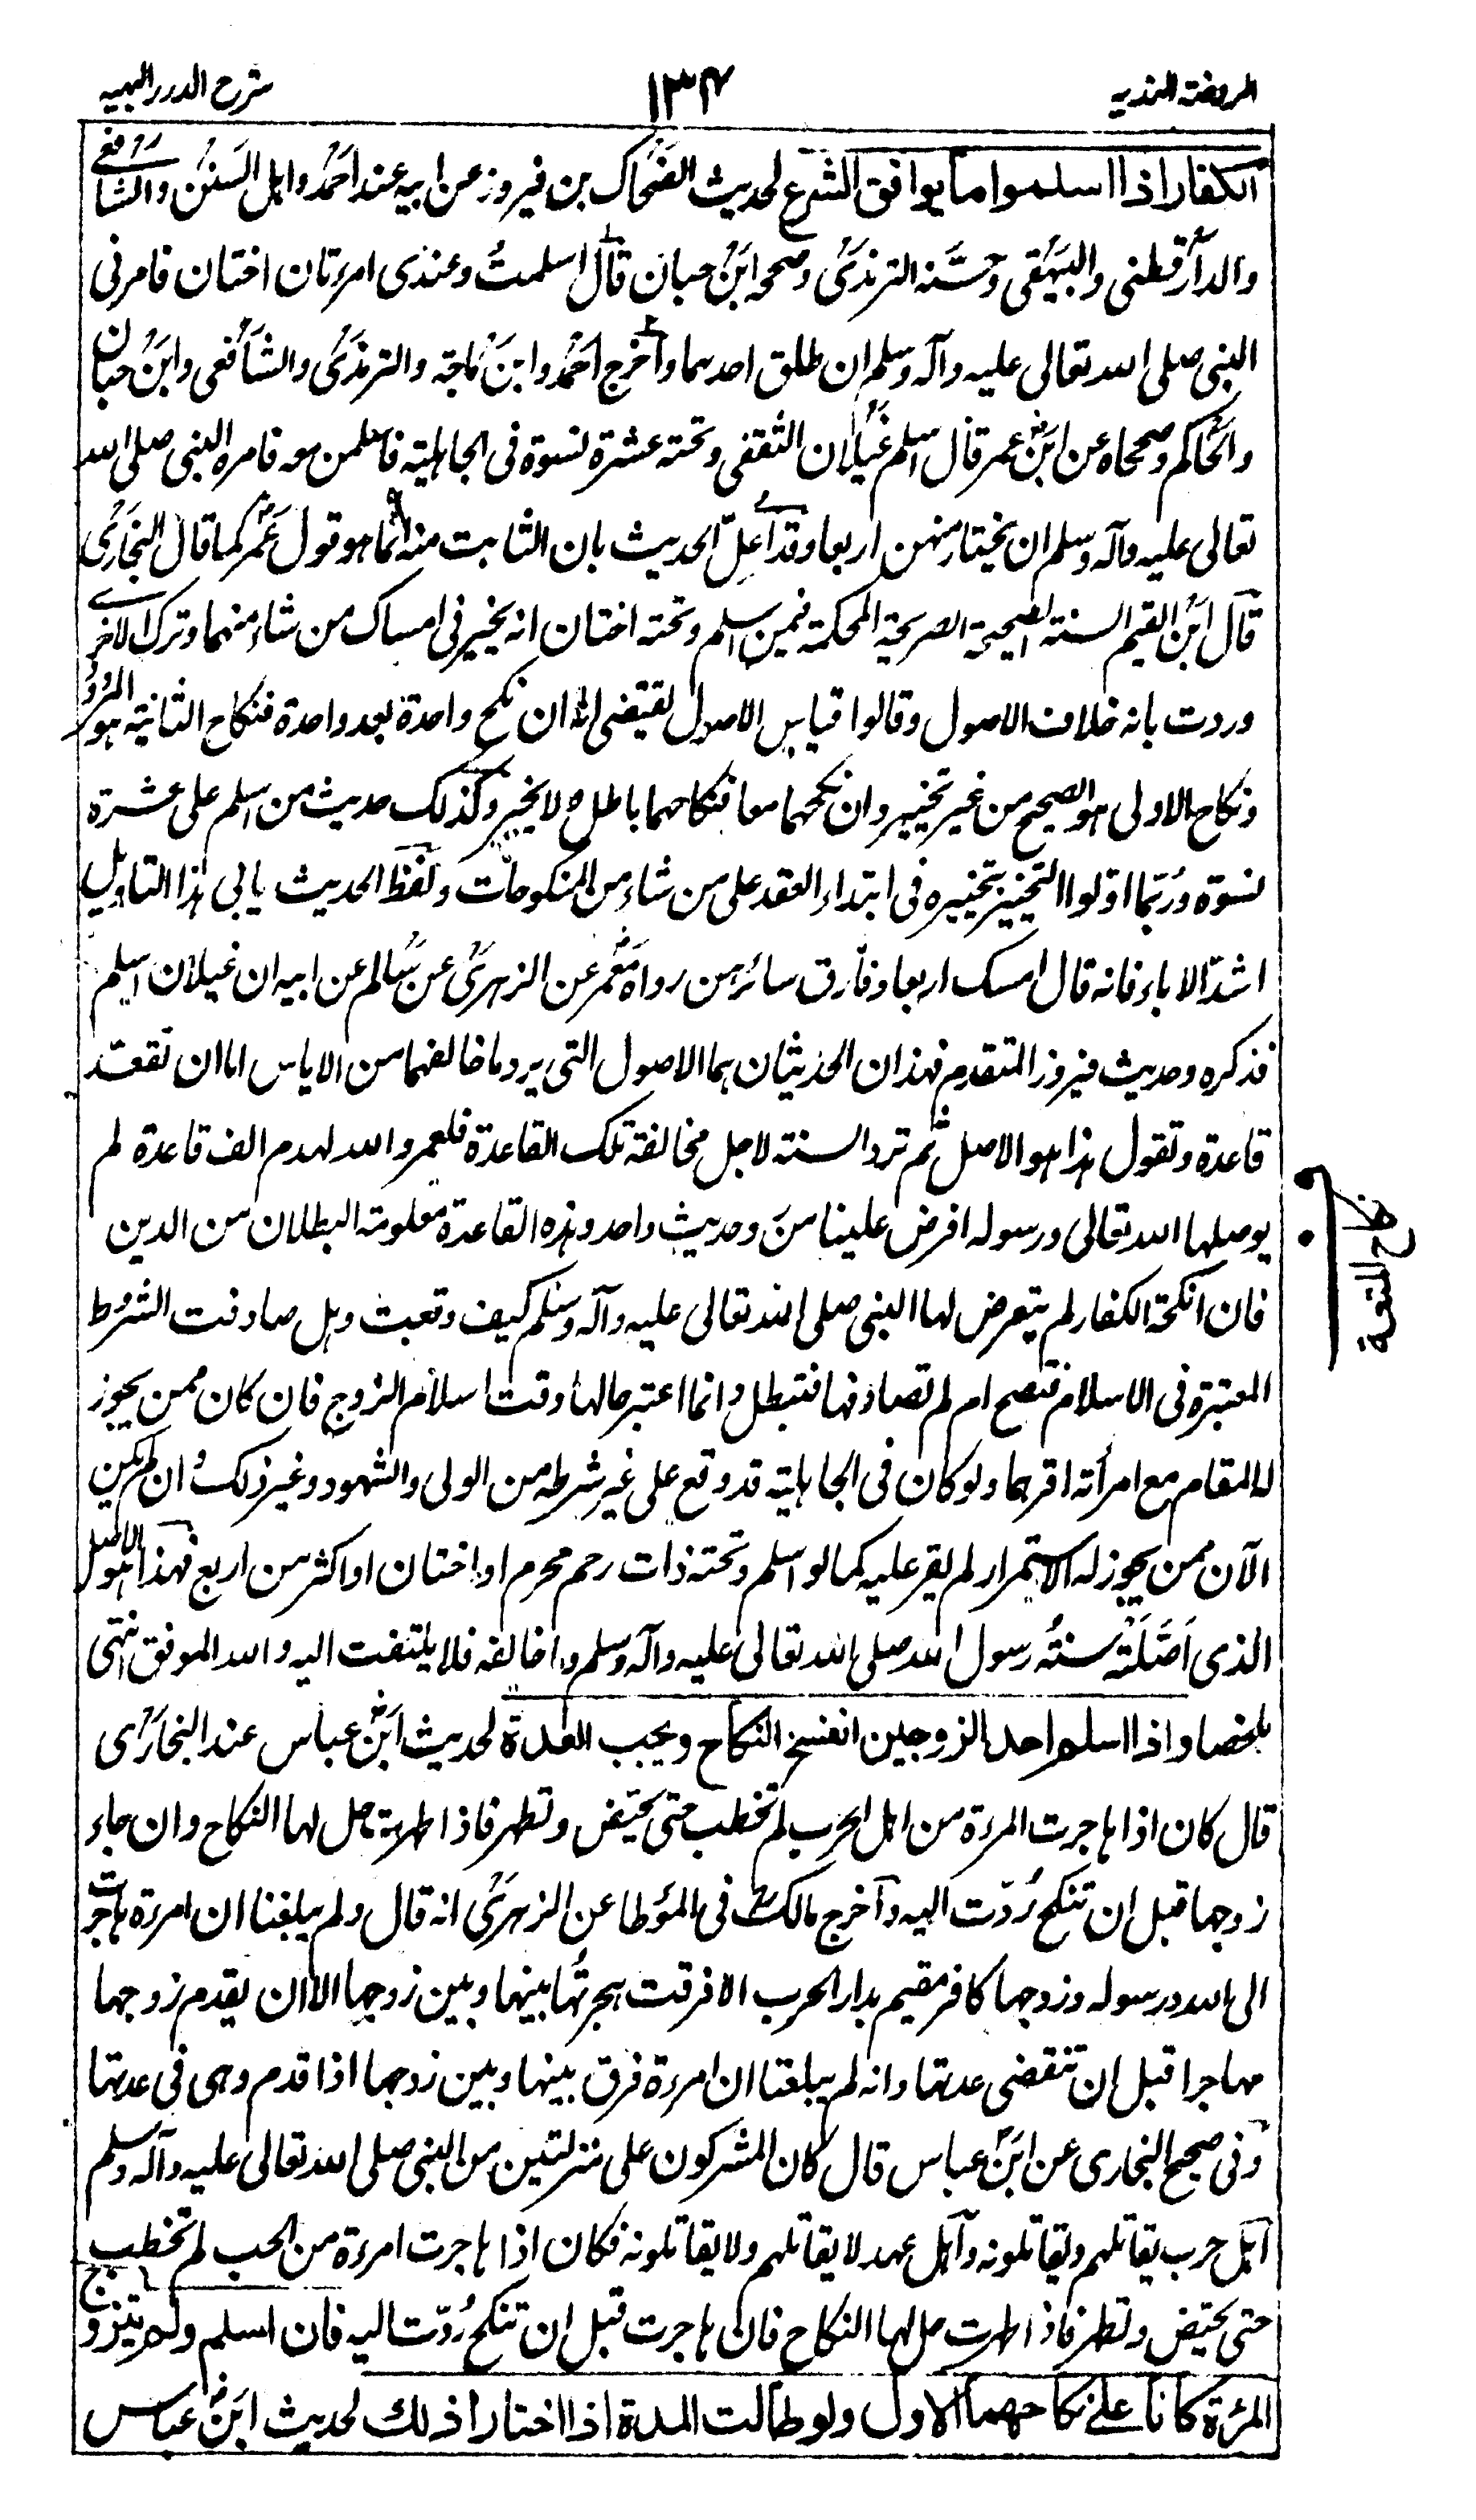 الروضة الندية ١٣٤ شرح الدرر البهية
الكفار اذا اسلموا ما يوافق الشرع لحديث الضحاك بن فيروز عن ابيه عند احمد واهل السنن والشافعي
والدارقطني والبيهقي وحسنه الترمذي وصححه ابن حبان قال اسلمت وعندي امرءتان اختان فامرني
النبي صلى الله تعالى عليه وآله وسلم ان اطلق احدهما واخرج احمد وابن ماجة والترمذي والشافعي وابن حبان
والحاكم وصححاه عن ابن عمر قال اسلم غيلان الثقفي وتحته عشرة نسوة في الجاهلية فاسلمن معه فامره النبي صلى الله
تعالى عليه وآله وسلم ان يختار منهن اربعا وقد اعل الحديث بان الثابت منه انما هو قول عمر كما قال البخاري
قال ابن القيم السنة الصحيحة الصريحة المحكمة فيمن اسلم وتحته اختان انه يخير في امساك من شاء منهما وترك الاخرى
وردت بانه خلاف الاصول وقالوا قياس الاصول يقتضي انه ان نكح واحدة بعد واحدة فنكاح الثانية هو المردود
ونكاح الاولى هو الصحيح من غير تخيير وان نكحهما معا فنكاحهما باطل ولا يخير وكذلك حديث من اسلم على عشرة
نسوة وربما اولوا التخيير بتخييره في ابتداء العقد على من شاء من المنكوحات ولفظ الحديث يابى هذا التاويل
اشد الاباء فانه قال امسك اربعا وفارق سائرهن رواه معمر عن الزهري عن سالم عن ابيه ان غيلان اسلم
فذكره وحديث فيروز المتقدم فهذان الحديثان هما الاصول التي يرد ما خالفهما من الاياس اما ان نقعد
قاعدة وتقول هذا هو الاصل ثم ترد السنة لاجل مخالفة تلك القاعدة فلعمر والله لهدم الف قاعدة لم
يوصلها الله تعالى ورسوله افرض علينا من رد حديث واحد وهذه القاعدة معلومة البطلان من الدين
فان انكحة الكفار لم يتعرض لها النبي صلى الله تعالى عليه وآله وسلم كيف وقعت وهل صادفت الشروط
المعتبرة في الاسلام فتصح ام لم تصادفها فتبطل وانما اعتبر حالها وقت اسلام الزوج فان كان ممن يجوز
له المقام مع امرأته اقرهما ولو كان في الجاهلية قد وقع على غير شرطه من الولي والشهود وغير ذلك وان لم يكن
الآن ممن يجوز له الاستمرار لم يقر عليه كما لو اسلم وتحته ذات رحم محرم او اختان او اكثر من اربع فهذا هو الاصل
الذي اصلته سنة رسول الله صلى الله تعالى عليه وآله وسلم وما خالفه فلا يلتفت اليه والله الموفق انتهى
ملخصا واذا اسلم احد الزوجين انفسخ النكاح ويجب العدة لحديث ابن عباس عند البخاري
قال كان اذا هاجرت المرءة من اهل الحرب لم تخطب حتى تحيض وتطهر فاذا طهرت حل لها النكاح وان جاء
زوجها قبل ان تنكح ردت اليه واخرج مالك في المؤطا عن الزهري انه قال ولم يبلغنا ان امرءة هاجرت
الى الله ورسوله وزوجها كافر مقيم بدار الحرب الا فرقت هجرتها بينها وبين زوجها الا ان يقدم زوجها
مهاجرا قبل ان تنقضي عدتها وانه لم يبلغنا ان امرءة فرق بينها وبين زوجها اذا قدم وهى في عدتها
وفي صحيح البخاري عن ابن عباس قال كان المشركون على منزلتين من النبي صلى الله تعالى عليه وآله وسلم
اهل حرب يقاتلهم ويقاتلونه واهل عهد لا يقاتلهم ولا يقاتلونه فكان اذا هاجرت امرءة من الحرب لم تخطب
حتى تحيض وتطهر فاذا طهرت حل لها النكاح فان هاجرت قبل ان تنكح ردت اليه فان اسلم ولم يتزوج
المرءة كانا على نكاحهما الاول ولو طالت المدة اذا اختارا ذلك لحديث ابن عباس